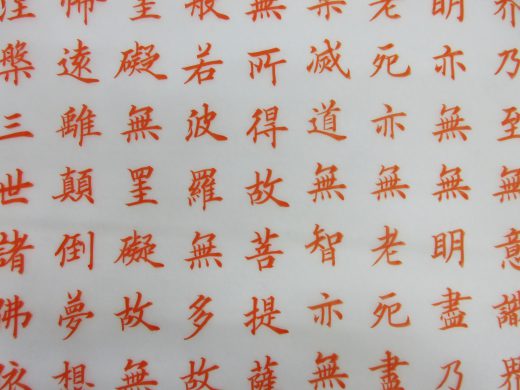 界乃至無意識界
明亦無無明盡乃
老死亦無老死盡
集滅道無智亦無
無所得故菩提薩
般若波羅無多故
罣礙無罣礙故無
怖遠離顛倒夢想
涅槃三世諸佛依